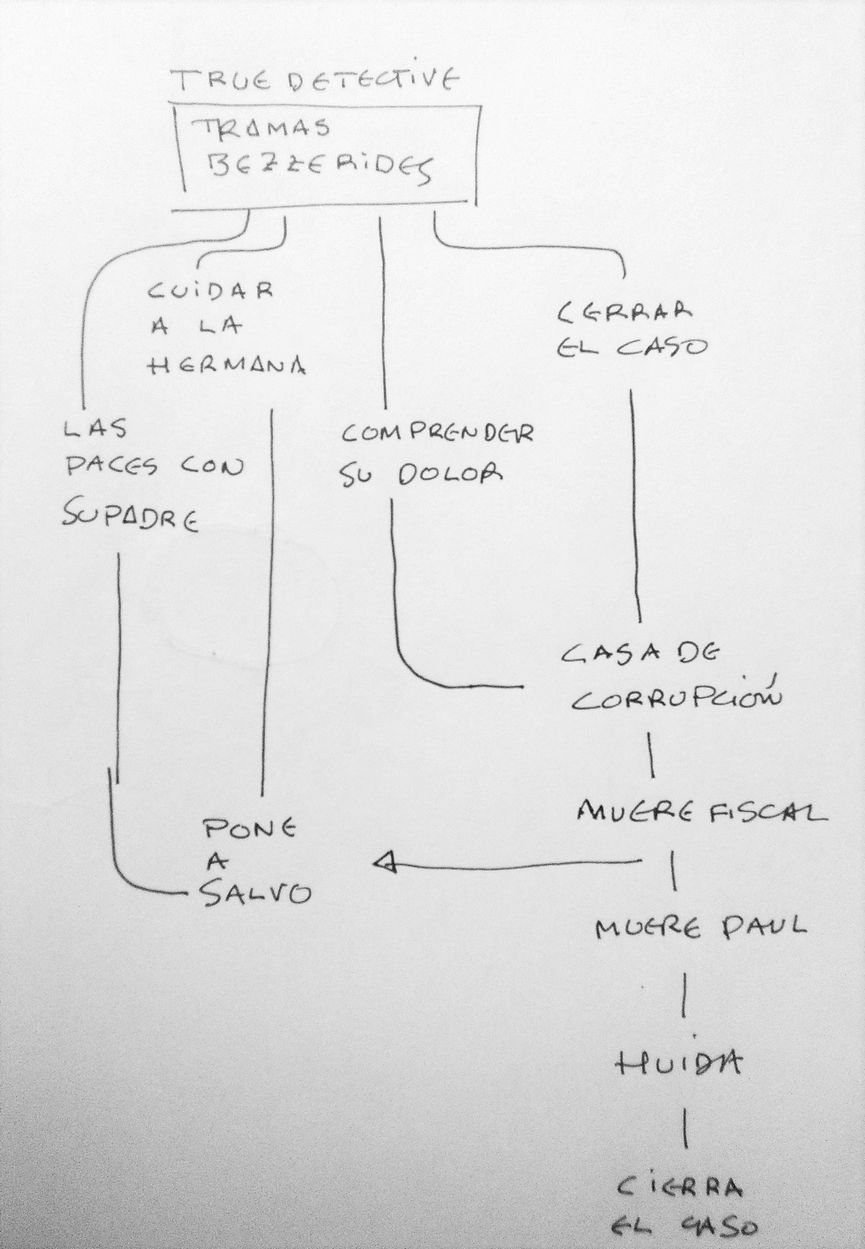 TRUE DETECTIVE
TRAMAS
BEZZERIDES
CUIDAR
A LA
HERMANA
CERRAR
EL CASO
LAS
PACES CON
SU PADRE
COMPRENDER
SU DOLOR
CASA DE
CORRUPCIÓN
MUERE FISCAL
PONE
A
SALVO
MUERE PAUL
HUIDA
CIERRA
EL CASO